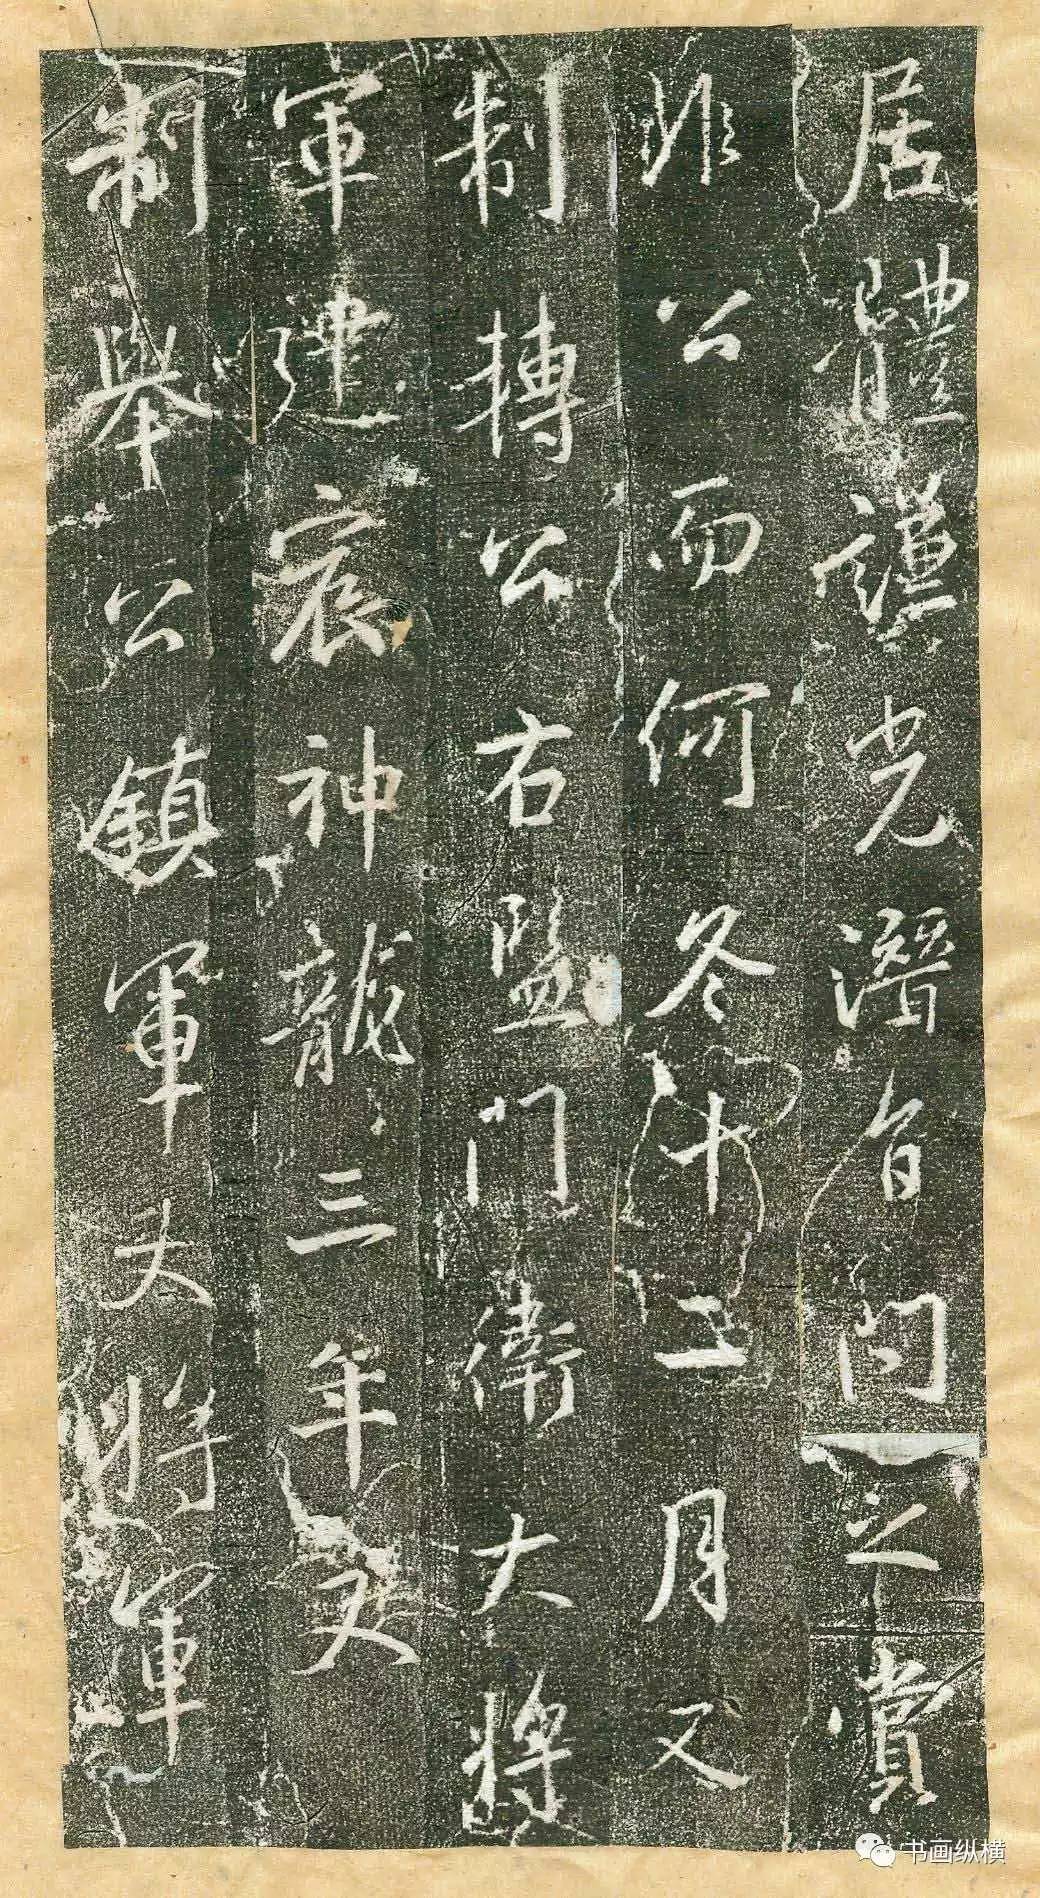 居體謹光潛旨問之賞
非公而何冬十二月又
制轉公右監門衛大將
軍建宸神龍三年又
制舉公鎮軍大將軍
书画纵横